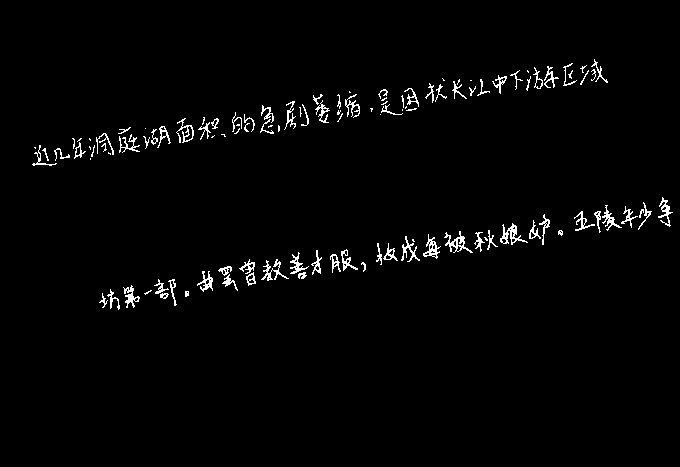 近几年洞庭湖面积的急剧萎缩，是因扰长江中下游区域
坊第一部。曲罢曾教善才服，妆成每被秋娘妒。五陵年少争